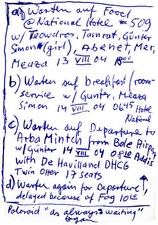 a) Warten auf Food
@ National Hotel #509
w/ Tewodros, Tamrat, Günter
Simon (girl), Abenet, Mer,
Meaza 13 VIII 04 1800
b) Warten auf breakfast/room-
service w/ Günter, Meaza
Simon 14 VIII 04 0645 Hotel
National
c) Warten auf Departure to
Arba Mintch from Bole Airp,
w/ Günter 14 VIII 04 0810 Addis
with De Havilland DHC6
Twin Otter 17 seats
d) Warten again for Departure,
delayed because of Fog 1010
Polaroid "as always waiting"
again